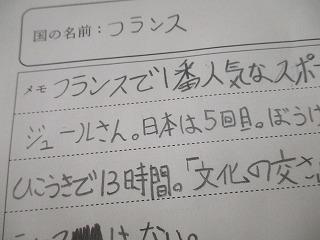 国の名前：フランス
メモ フランスで1番人気なスポ
ジュールさん。日本は5回目。ぼうけ
ひこうきで13時間。「文化の交さ
はない。